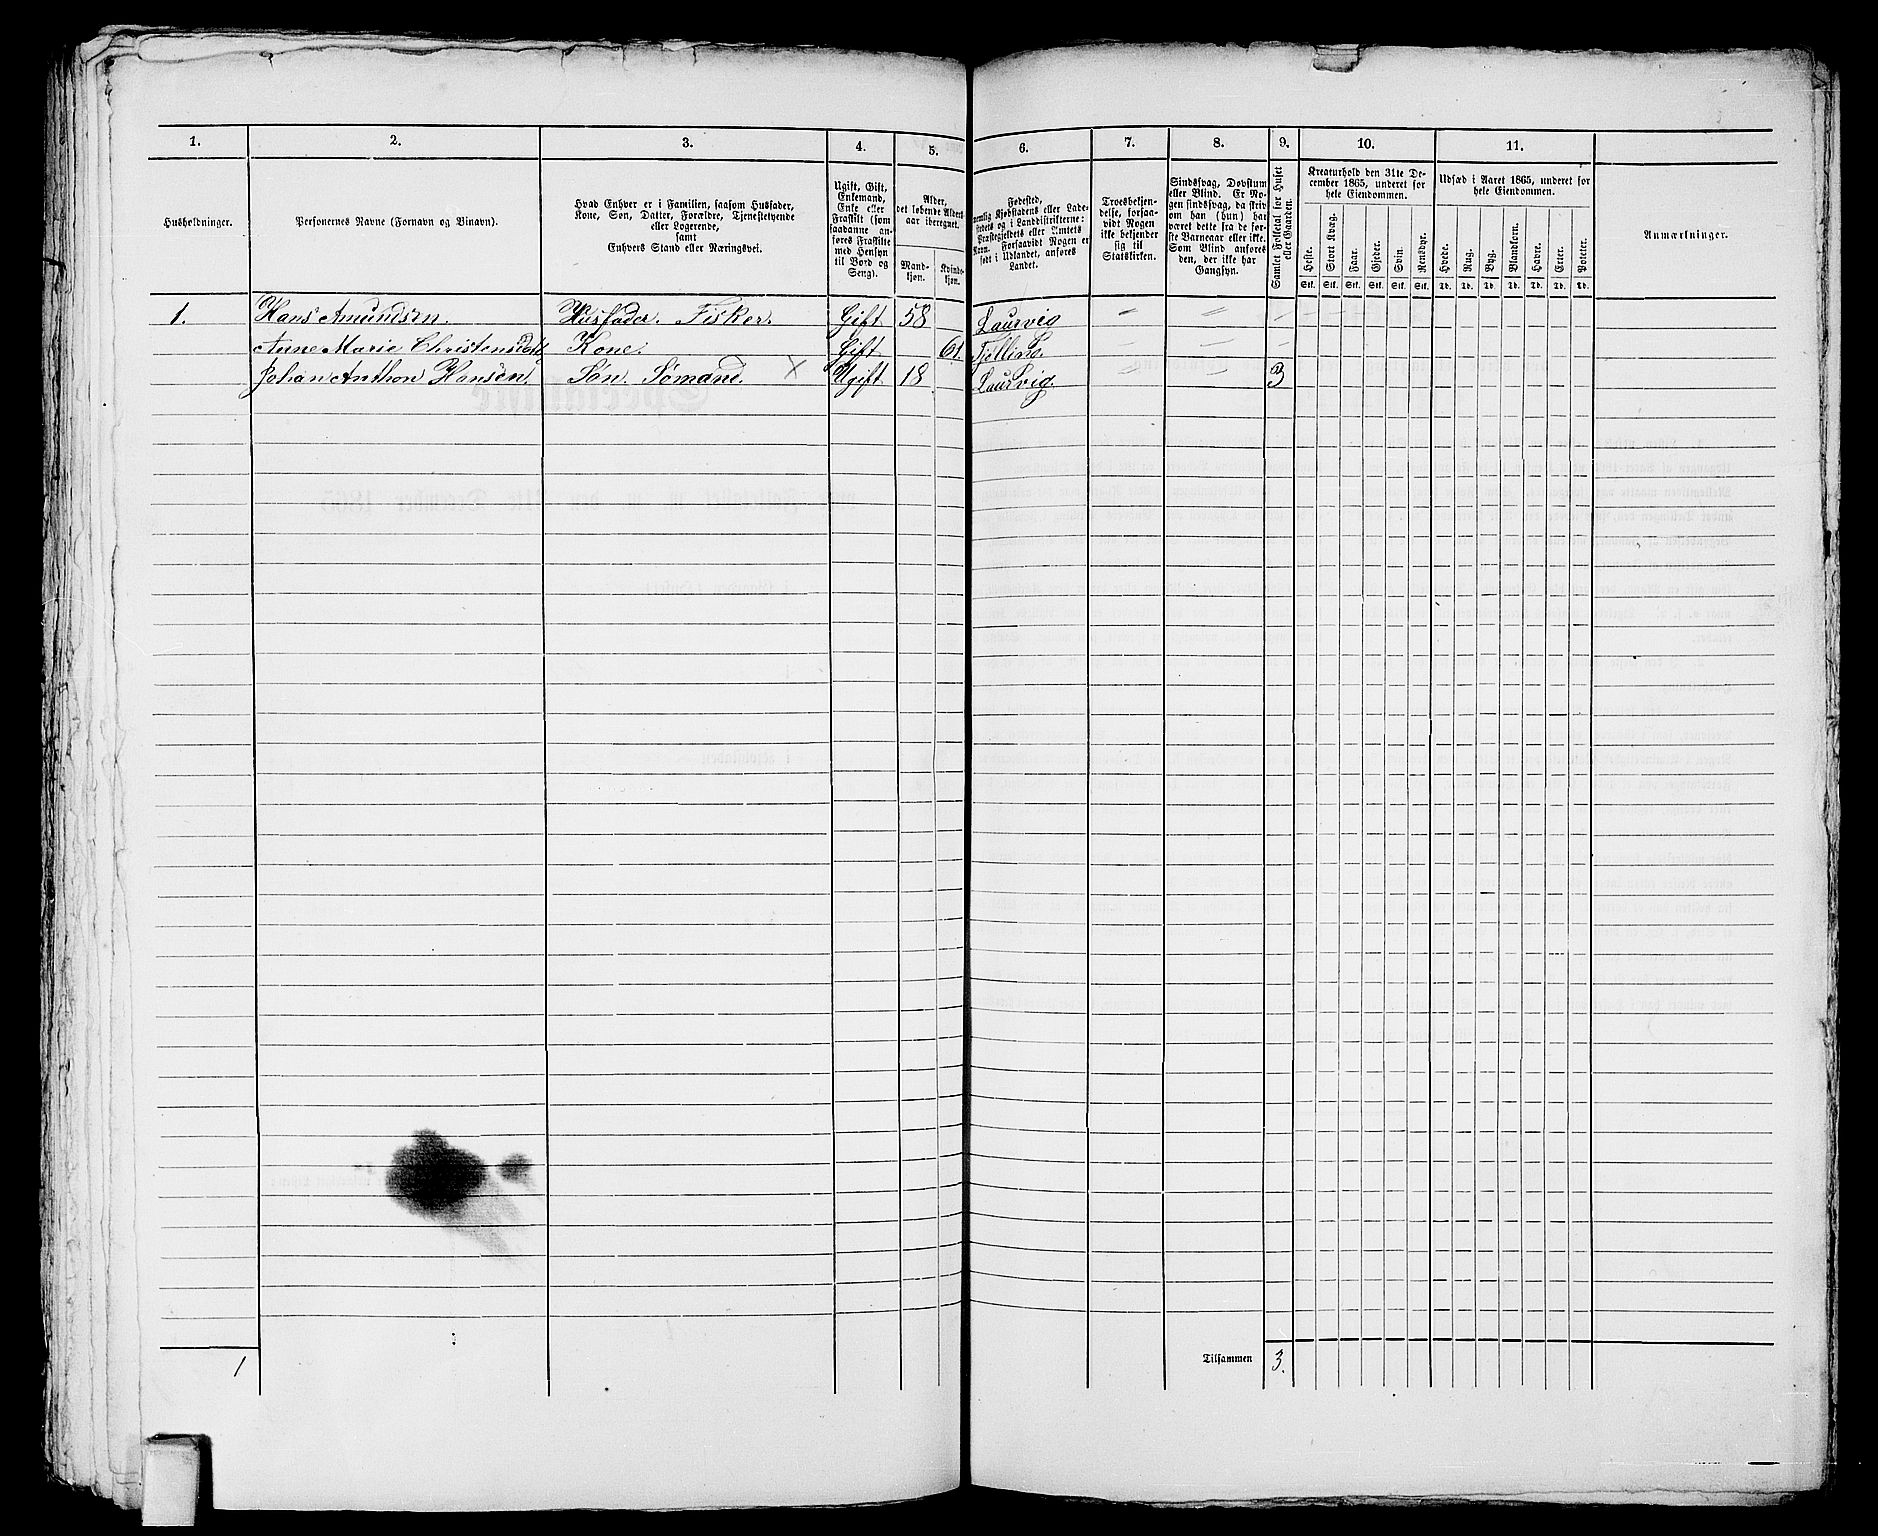 1. 2. 3. 4. 5. 6. 7. 8. 9. 10. 11.
Husholdninger.
Personernes Navne (Fornavn og Binavn).
Hvad Enhver er i Familien, saasom Husfader,
Kone, Søn, Datter, Forældre, Tjenestetyende
eller Logerende,
samt
Enhvers Stand eller Næringsvei.
Ugift, Gift,
Enkemand,
Enke eller
Fraskilt (som
saadanne an-
føres Fraskilte
med Hensyn
til Bord og
Seng).
Alder,
det løbende Alders-
aar iberegnet.
Mand-
kjøn.
Kvinde-
kjøn.
Fødested,
nemlig Kjøbstadens eller Lade-
stedets og i Landdistrikterne:
Præstegjeldets eller Amtets
Navn. Forsaavidt Nogen er
født i Udlandet, anføres
Landet.
Troesbekjen-
delse, forsaa-
vidt Nogen
ikke bekjender
sig til
Statskirken.
Sindssvag, Døvstum
eller Blind. Er No-
gen sindssvag, da skriv
om han (hun) har
været dette fra de før-
ste Barneaar eller ikke.
Som Blind anføres
den, der ikke har
Gangsyn.
Samlet Folketal for Huset
eller Gaarden.
Kreaturhold den 31te De-
cember 1865, underet for
hele Eiendommen.
Heste. Stort Kvæg. Faar. Gjeder. Svin. Rensdyr.
Stk. Stk. Stk. Stk. Stk. Stk.
Udsæd i Aaret 1865, underet for
hele Eiendommen.
Hvede. Rug. Byg. Blandkorn. Havre. Erter. Poteter.
Td. Td. Td. Td. Td. Td. Td.
Anmærkninger.
1. Hans Amundsen. Husfader. Fisker. Gift 58 Laurvig " " "
Anne Marie Christensdatt. Kone. Gift 61. Tjølling. " " "
Johan Anthon Hansen. Søn. Sømand. X Ugift 18 Laurvig. " " 3
1 Tilsammen 3.